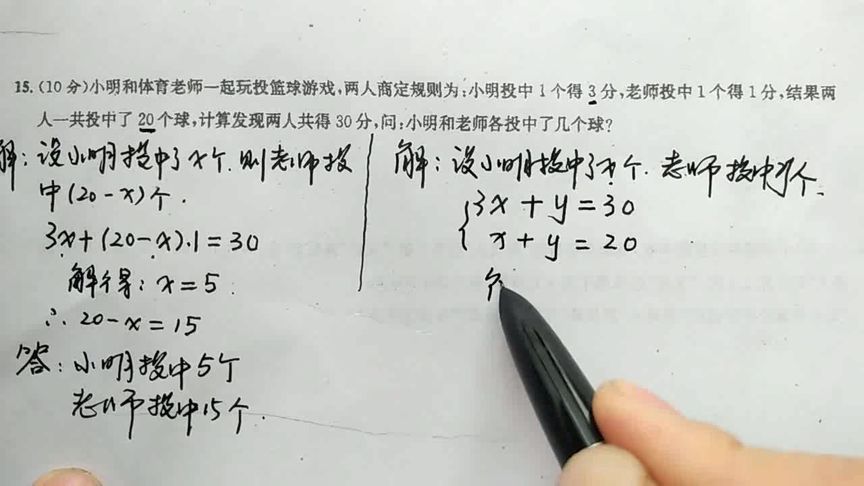 15. (10分)小明和体育老师一起玩投篮球游戏,两人商定规则为:小明投中1个得3分,老师投中1个得1分,结果两
人一共投中了20个球,计算发现两人共得30分,问:小明和老师各投中了几个球?
解:设小明投中了x个.则老师投
中(20-x)个.
3x+(20-x)·1=30
解得:x=5
∴20-x=15
答:小明投中5个
老师投中15个.
解:设小明投中了x个.老师投中y个.
3x+y=30
x+y=20